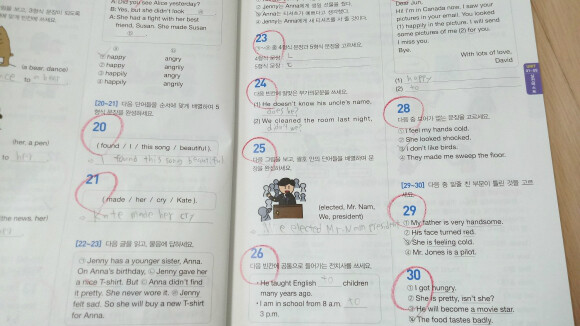 A: Did you see Alice yesterday?
B: Yes, but she didn't look ⓐ
A: She had a fight with her best
friend, Susan. She made Susan
ⓑ
ⓐ ⓑ
① happy angry
② happy angrily
③ happily angry
④ happily angrily
(is bear, dance)
[20~21] 다음 단어들을 순서에 맞게 배열하여 5
형식 문장을 완성하세요.
20
(found / I / this song / beautiful).
I found this song beautiful
21
(made / her / cry / Kate).
Kate made her cry
(her, a pen)
to
the news, her)
[22~23] 다음 글을 읽고, 물음에 답하세요.
㉠ Jenny has a younger sister, Anna.
On Anna's birthday, ㉡ Jenny gave her
a nice T-shirt. But ㉢ Anna didn't find
it pretty. She never wore it. ㉣ Jenny
felt sad. So she will buy a new T-shirt
for Anna.
23
㉠~㉣ 중 4형식 문장과 5형식 문장을 고르세요.
4형식 문장:
5형식 문장:
24
다음 빈칸에 알맞은 부가의문문을 쓰세요.
(1) He doesn't know his uncle's name,
does he?
(2) We cleaned the room last night,
didn't we?
25
다음 그림을 보고, 괄호 안의 단어들을 배열하여 문
장을 완성하세요.
(elected, Mr. Nam,
We, president)
We elected Mr. Nam president
26
다음 빈칸에 공통으로 들어가는 전치사를 쓰세요.
• He taught English to children
many years ago.
• I am in school from 8 a.m. to
3 p.m.
Dear Jun,
Hi! I'm in Canada now. I saw your
pictures in your email. You looked
(1) happily in the picture. I will send
some pictures of me (2) for you.
I miss you.
Bye.
With lots of love,
David
(1) happy
(2) to
28
다음 중 보어가 없는 문장을 고르세요.
① I feel my hands cold.
② She looked shocked.
③ I don't like birds.
④ They made me sweep the floor.
[29~30] 다음 중 밑줄 친 부분이 틀린 것을 고르
세요.
29
① My father is very handsome.
② His face turned red.
③ She is feeling cold.
④ Mr. Jones is a pilot.
30
① I got hungry.
② She is pretty, isn't she?
③ He will become a movie star.
④ The food tastes badly.